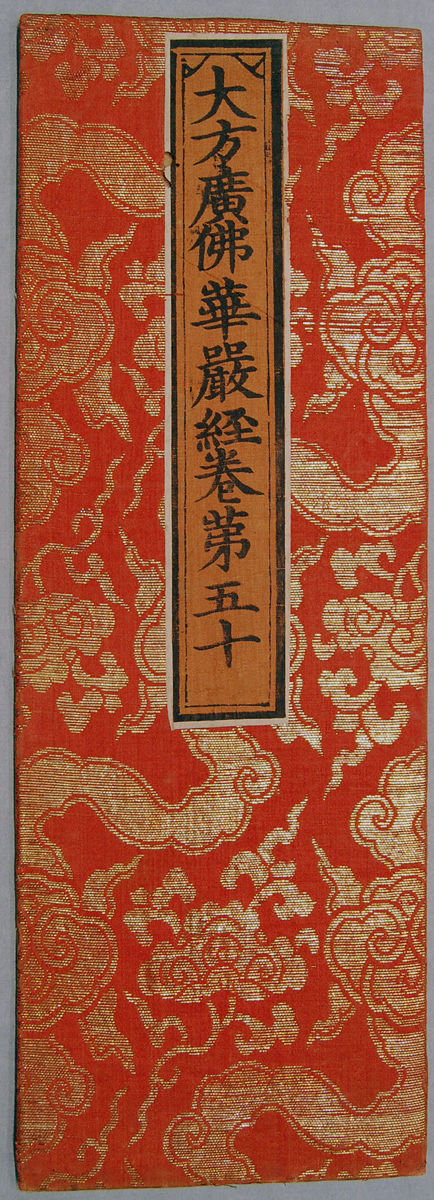 大方廣佛華嚴経卷苐五十